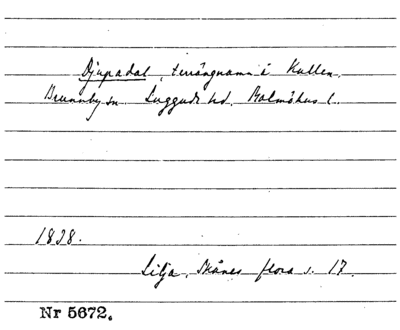 Djupadal, terrängnamn i Kullen.
Brunnby sn. Luggude hd. Malmöhus l.
1838.
Lilja, Skånes flora s. 17.
Nr 5672.